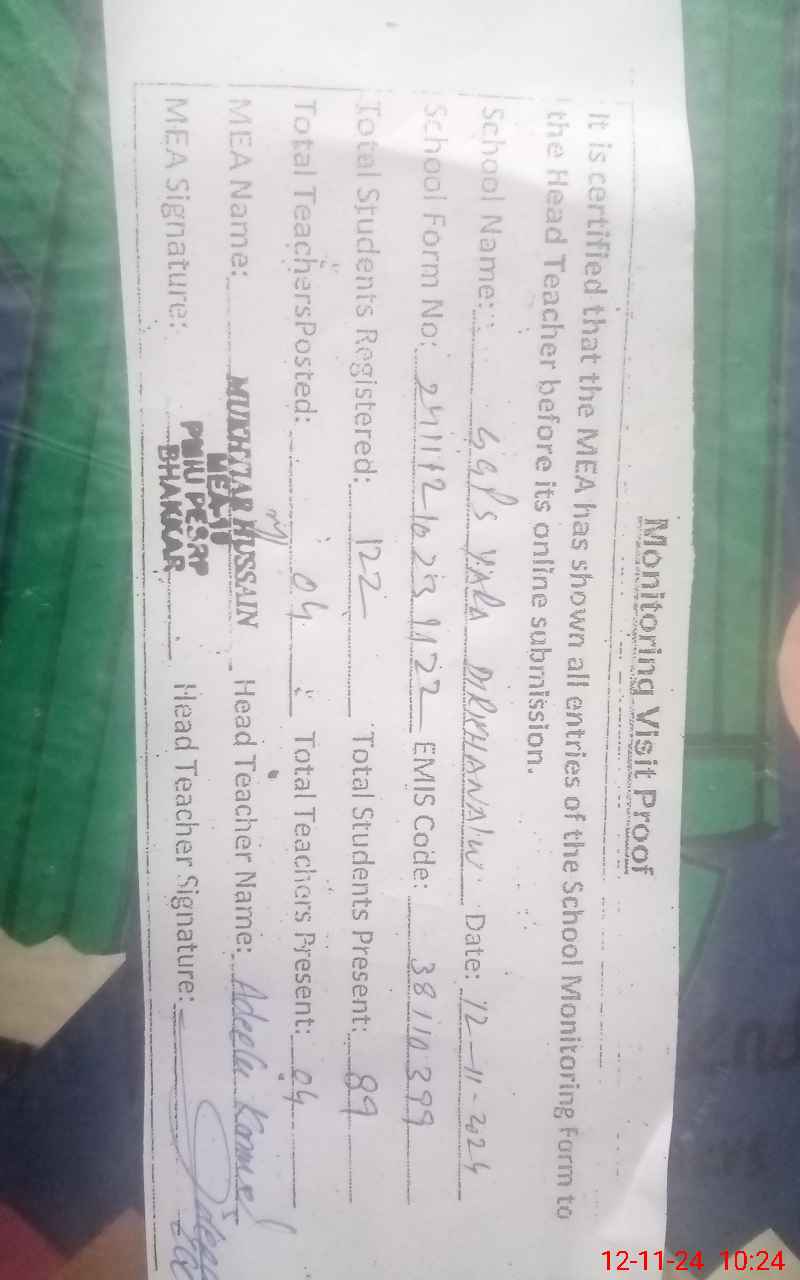 Monitoring Visit Proof
It is certified that the MEA has shown all entries of the School Monitoring Form to
the Head Teacher before its online submission.
School Name: GGPS Date: 12-11-2024
School Form No: EMIS Code: 38110399
Total Students Registered: 122 Total Students Present: 89
Total Teachers Posted: 04 Total Teachers Present: 04
MEA Name: MUKHTIAR HUSSAIN Head Teacher Name: Adeela
MEA Signature: PMIU PESRP Head Teacher Signature:
BHAKKAR
12-11-24 10:24